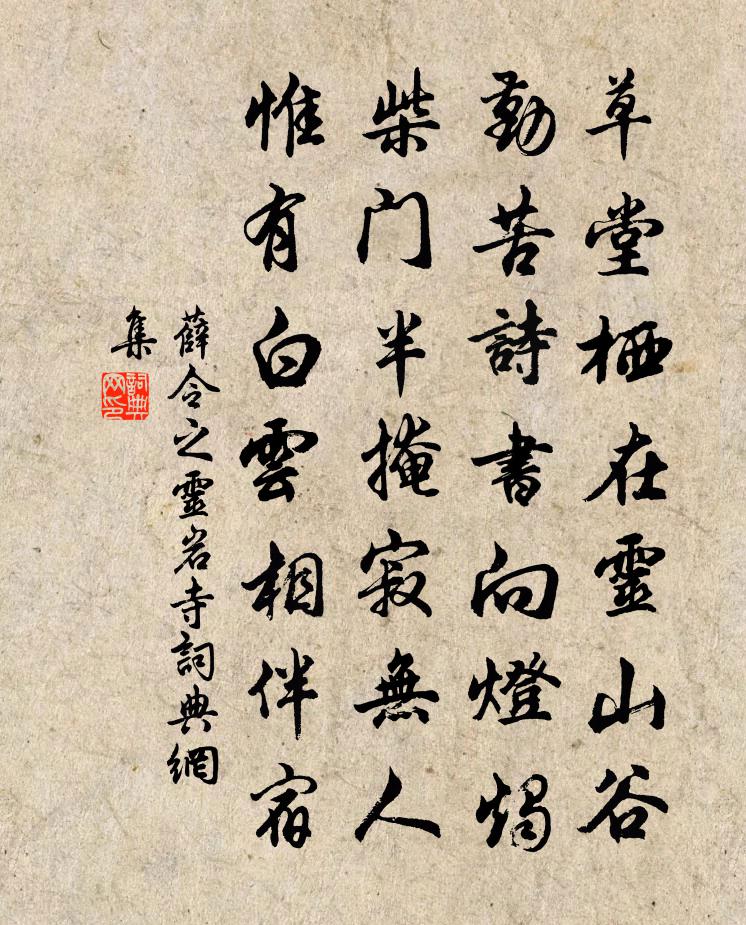 草堂栖在靈山谷
勤苦詩書向燈燭
柴门半掩寂無人
惟有白雲相伴宿
薛令之靈岩寺詞典網
集
詞典
网印